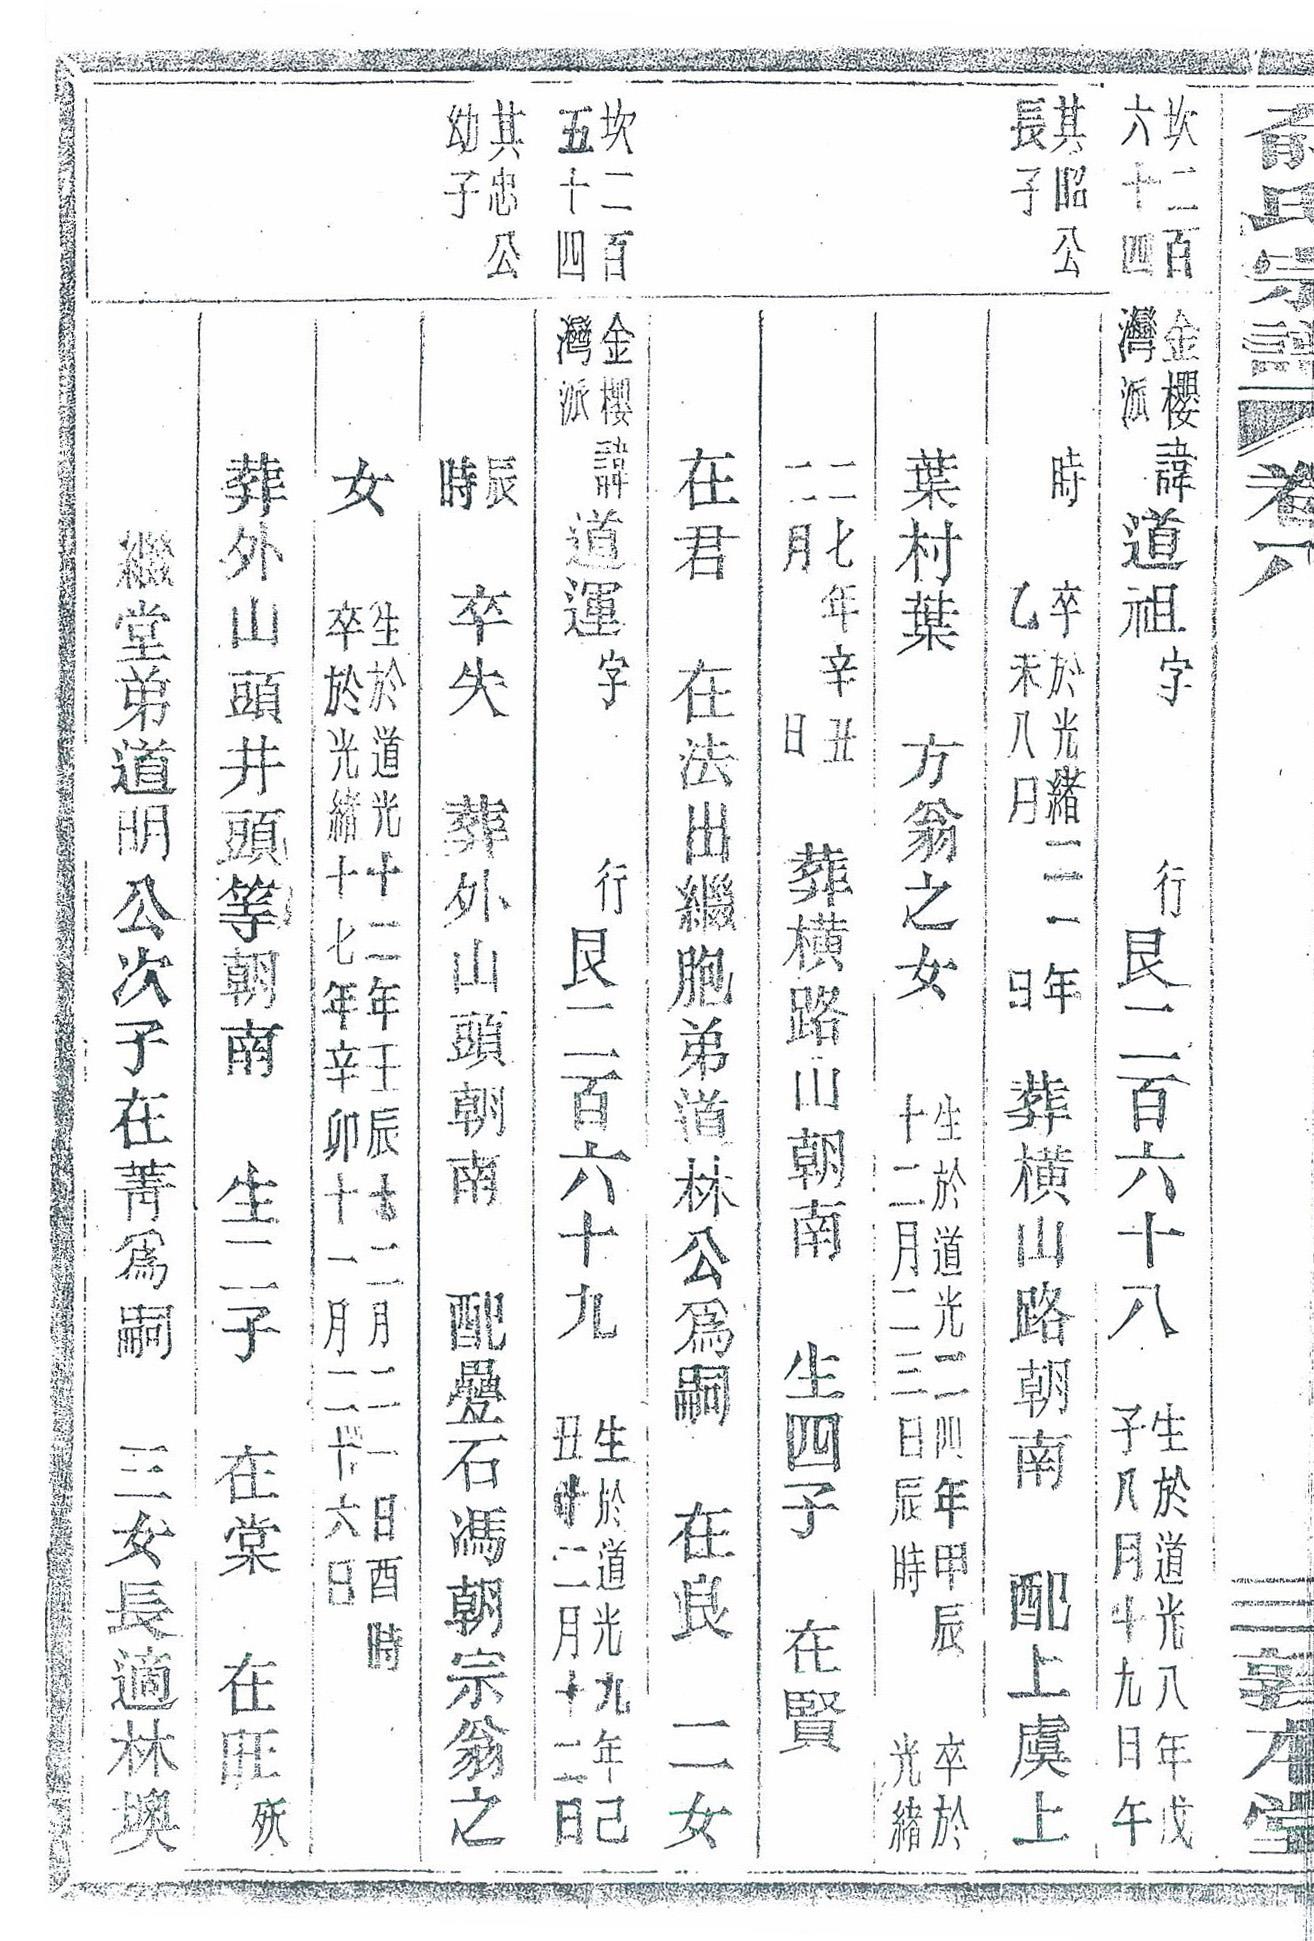 俞氏宗譜 卷 三 敦本堂
坎二百
六十四
金櫻
灣派
諱道祖字 行艮二百六十八
生於道光八年戊
子八月十九日午
其昭公
長子
時
卒於光緒二十一年
乙未八月 日
葬橫山路朝南 配上虞上
葉村葉 方翁之女
生於道光二四年甲辰
十二月二三日辰時
卒於
光緒
二七年辛丑
二月 日
葬橫路山朝南 生四子 在賢
在君 在法出繼胞弟道林公爲嗣 在良 二女
坎二百
五十四
金櫻
灣派
諱道運字 行艮二百六十九
生於道光九年己
丑十二月十二日
其忠公
幼子
辰
時
卒失 葬外山頭朝南 配疊石馮朝宗翁之
女
生於道光十二年壬辰十二月二一日酉時
卒於光緒十七年辛卯十一月二十六日
葬外山頭井頭等朝南 生二子 在棠 在旺殀
繼堂弟道明公次子在菁爲嗣 三女長適林墺